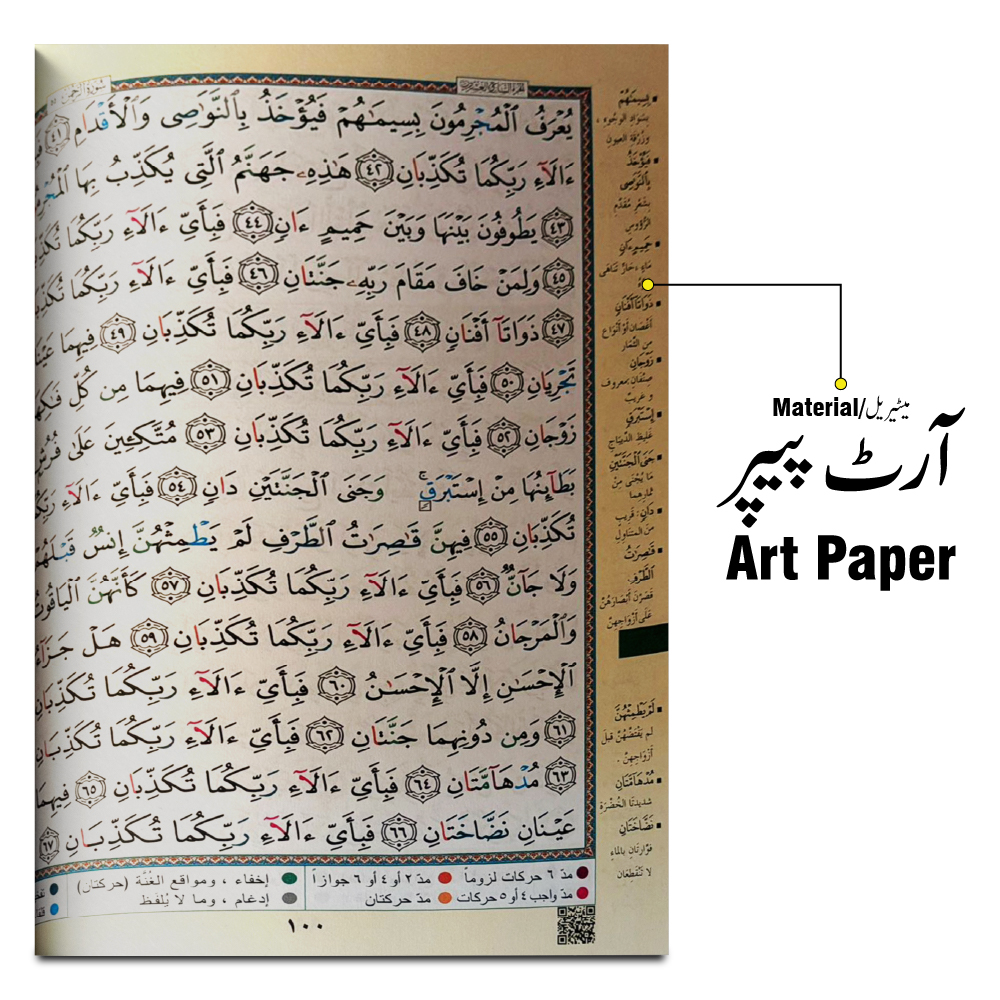 الجزء السابع والعشرون
سُورَةُ الرَّحْمٰن ٥٥
يُعْرَفُ ٱلْمُجْرِمُونَ بِسِيمَٰهُمْ فَيُؤْخَذُ بِٱلنَّوَٰصِى وَٱلْأَقْدَامِ ٤١
ءَالَآءِ رَبِّكُمَا تُكَذِّبَانِ ٤٢ هَٰذِهِۦ جَهَنَّمُ ٱلَّتِى يُكَذِّبُ بِهَا
٤٣ يَطُوفُونَ بَيْنَهَا وَبَيْنَ حَمِيمٍ ءَانٍ ٤٤ فَبِأَىِّ ءَالَآءِ رَبِّكُمَا
٤٥ وَلِمَنْ خَافَ مَقَامَ رَبِّهِۦ جَنَّتَانِ ٤٦ فَبِأَىِّ ءَالَآءِ رَبِّكُمَا
٤٧ ذَوَاتَآ أَفْنَانٍ ٤٨ فَبِأَىِّ ءَالَآءِ رَبِّكُمَا تُكَذِّبَانِ ٤٩ فِيهِمَا
تَجْرِيَانِ ٥٠ فَبِأَىِّ ءَالَآءِ رَبِّكُمَا تُكَذِّبَانِ ٥١ فِيهِمَا مِن كُلِّ
زَوْجَانِ ٥٢ فَبِأَىِّ ءَالَآءِ رَبِّكُمَا تُكَذِّبَانِ ٥٣ مُتَّكِـِٔينَ عَلَىٰ فُرُشٍ
بَطَآئِنُهَا مِنْ إِسْتَبْرَقٍ ۚ وَجَنَى ٱلْجَنَّتَيْنِ دَانٍ ٥٤ فَبِأَىِّ ءَالَآءِ
تُكَذِّبَانِ ٥٥ فِيهِنَّ قَٰصِرَٰتُ ٱلطَّرْفِ لَمْ يَطْمِثْهُنَّ إِنسٌ قَبْلَهُمْ
وَلَا جَآنٌّ ٥٦ فَبِأَىِّ ءَالَآءِ رَبِّكُمَا تُكَذِّبَانِ ٥٧ كَأَنَّهُنَّ ٱلْيَاقُوتُ
وَٱلْمَرْجَانُ ٥٨ فَبِأَىِّ ءَالَآءِ رَبِّكُمَا تُكَذِّبَانِ ٥٩ هَلْ جَزَآءُ
ٱلْإِحْسَٰنِ إِلَّا ٱلْإِحْسَٰنُ ٦٠ فَبِأَىِّ ءَالَآءِ رَبِّكُمَا تُكَذِّبَانِ
٦١ وَمِن دُونِهِمَا جَنَّتَانِ ٦٢ فَبِأَىِّ ءَالَآءِ رَبِّكُمَا تُكَذِّبَانِ
٦٣ مُدْهَآمَّتَانِ ٦٤ فَبِأَىِّ ءَالَآءِ رَبِّكُمَا تُكَذِّبَانِ ٦٥ فِيهِمَا
عَيْنَانِ نَضَّاخَتَانِ ٦٦ فَبِأَىِّ ءَالَآءِ رَبِّكُمَا تُكَذِّبَانِ ٦٧
بِسِيمَٰهُمْ
بسَوادِ الوجُوهِ،
وزُرْقَةِ العيونِ
فَيُؤْخَذُ
بِالنَّوَٰصِى
بشَعْرِ مُقَدَّمِ
الرُّؤُوسِ
حَمِيمٍ ءَانٍ
ماءٍ حَارٍّ تَنَاهَى
ذَوَاتَآ أَفْنَانٍ
أغصَان أوْ أنْوَاعٍ
مِن الثِّمَارِ
زَوْجَانِ
صِنْفَانِ: معروف
وغريبٌ
إِسْتَبْرَقٍ
غَليظِ الدِّيبَاج
جَنَى الْجَنَّتَيْنِ
مَا يُجْنَى مِنْ
ثمارِهما
دَانٍ: قَرِيبٌ
مِن المتَنَاوِلِ
قَٰصِرَٰتُ
الطَّرْفِ
قَصَرْنَ أبْصَارَهُنَّ
عَلَى أزْوَاجِهِنَّ
لَمْ يَطْمِثْهُنَّ
لم يَفْتَضَّهُنَّ قبلَ
أزْوَاجِهِنَّ.
مُدْهَآمَّتَانِ
شَدِيدَتَا الخُضْرَةِ
نَضَّاخَتَانِ
فَوَّارَتَانِ بالماءِ
لا تَنْقَطِعَان
مدّ ٦ حركات لزوماً مدّ ٢ أو ٤ أو ٦ جوازاً إخفاء ، ومواقع الغُنَّة (حركتان)
مدّ واجب ٤ أو ٥ حركات مدّ حركتان إدغام ، وما لا يُلفظ
١٠٠
Material/میٹیریل
آرٹ پیپر
Art Paper